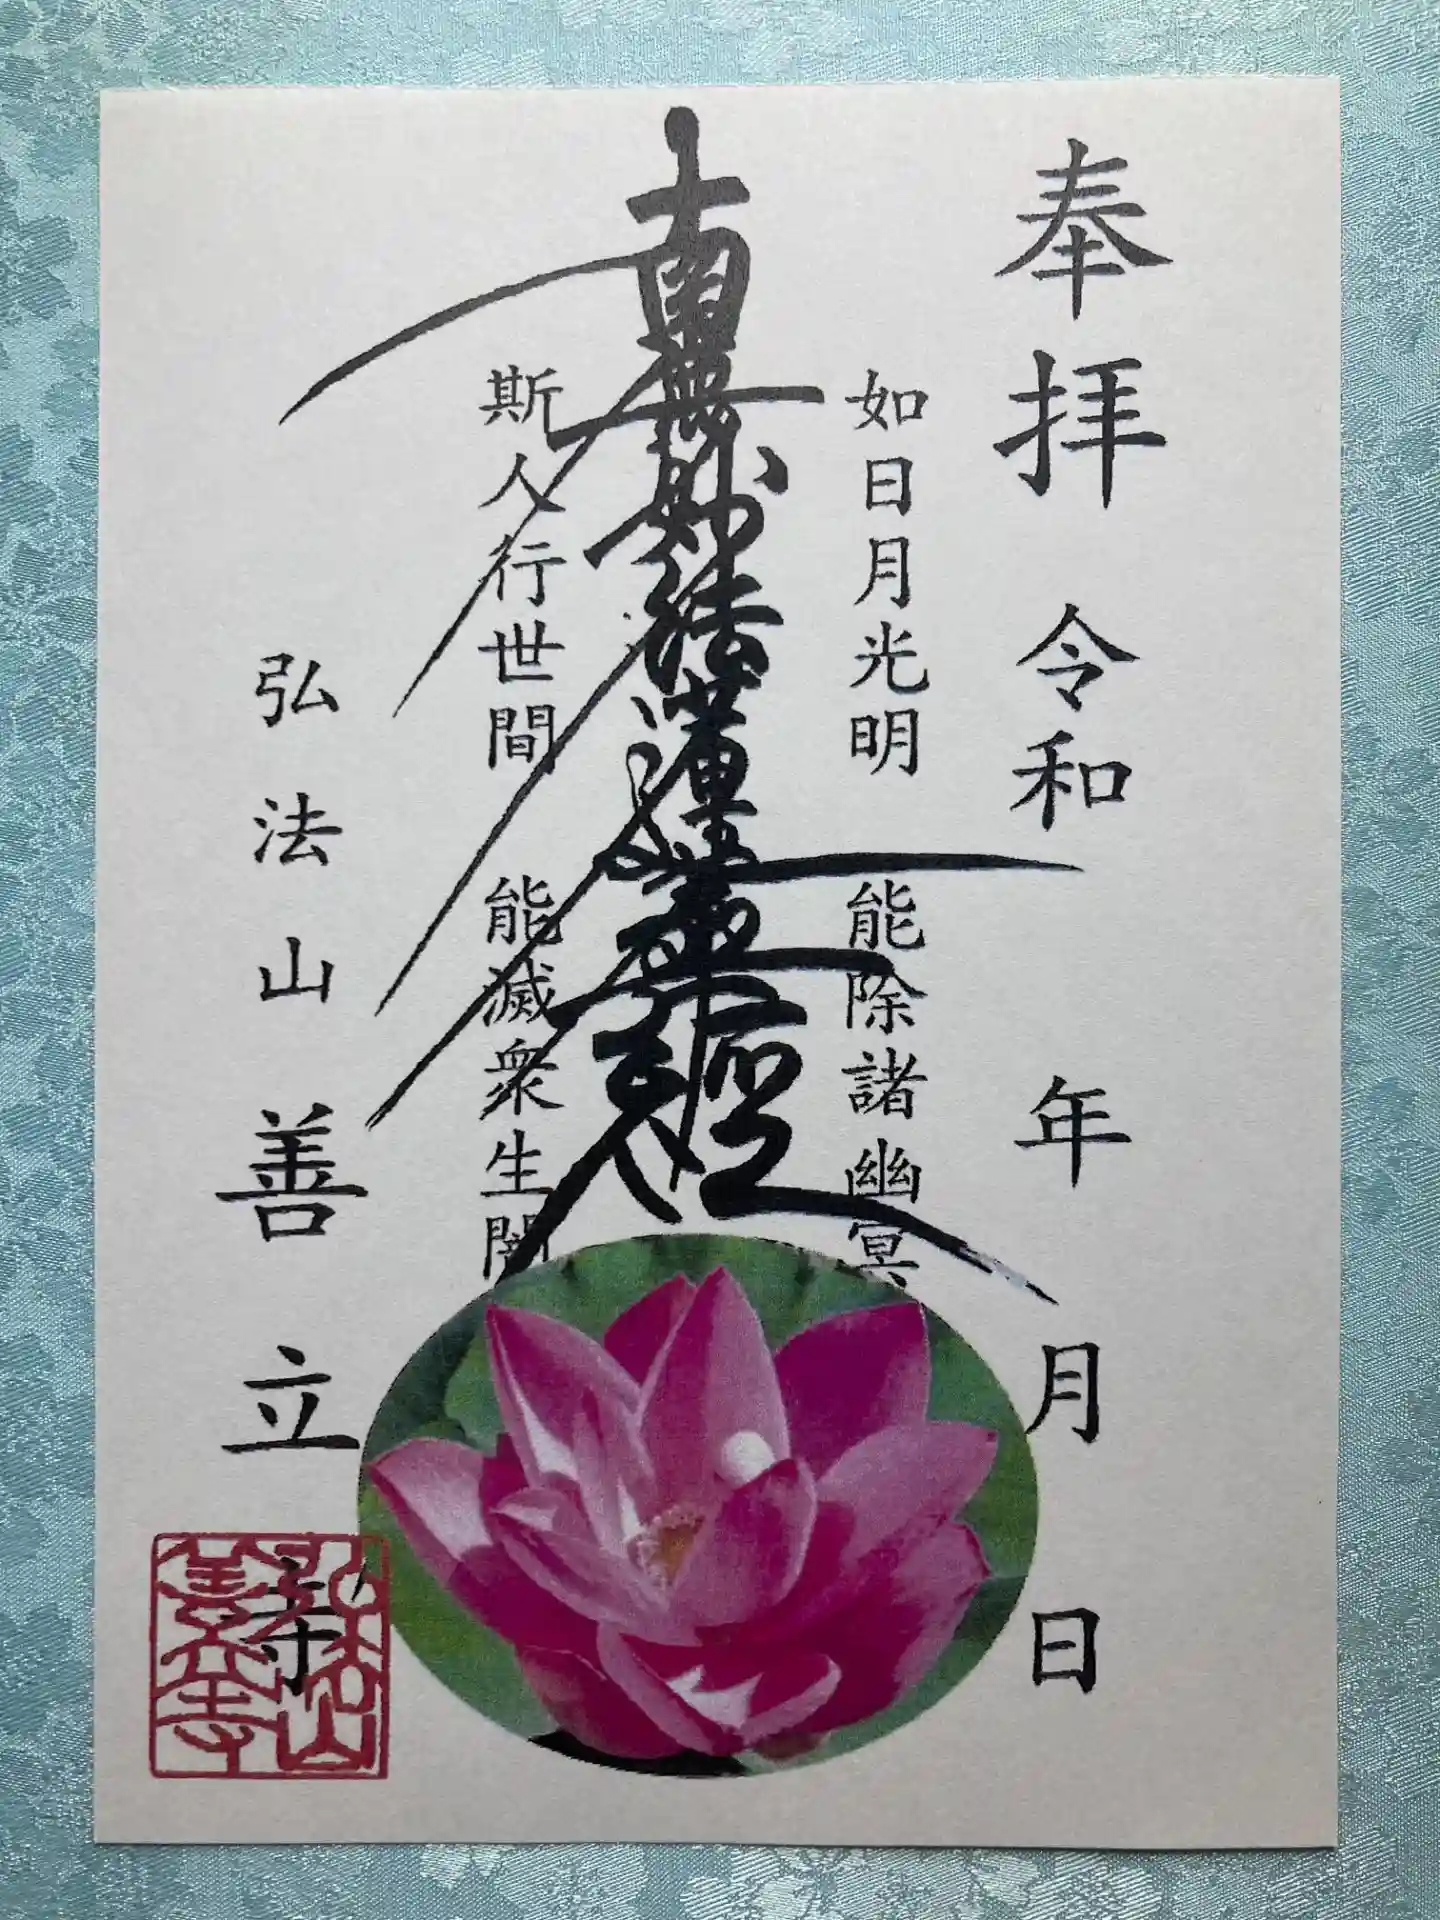 奉拝 令和 年 月 日
如日月光明 能除諸幽冥
南無妙法蓮華経
斯人行世間 能滅衆生闇
弘法山 善立寺
弘法山
善立寺